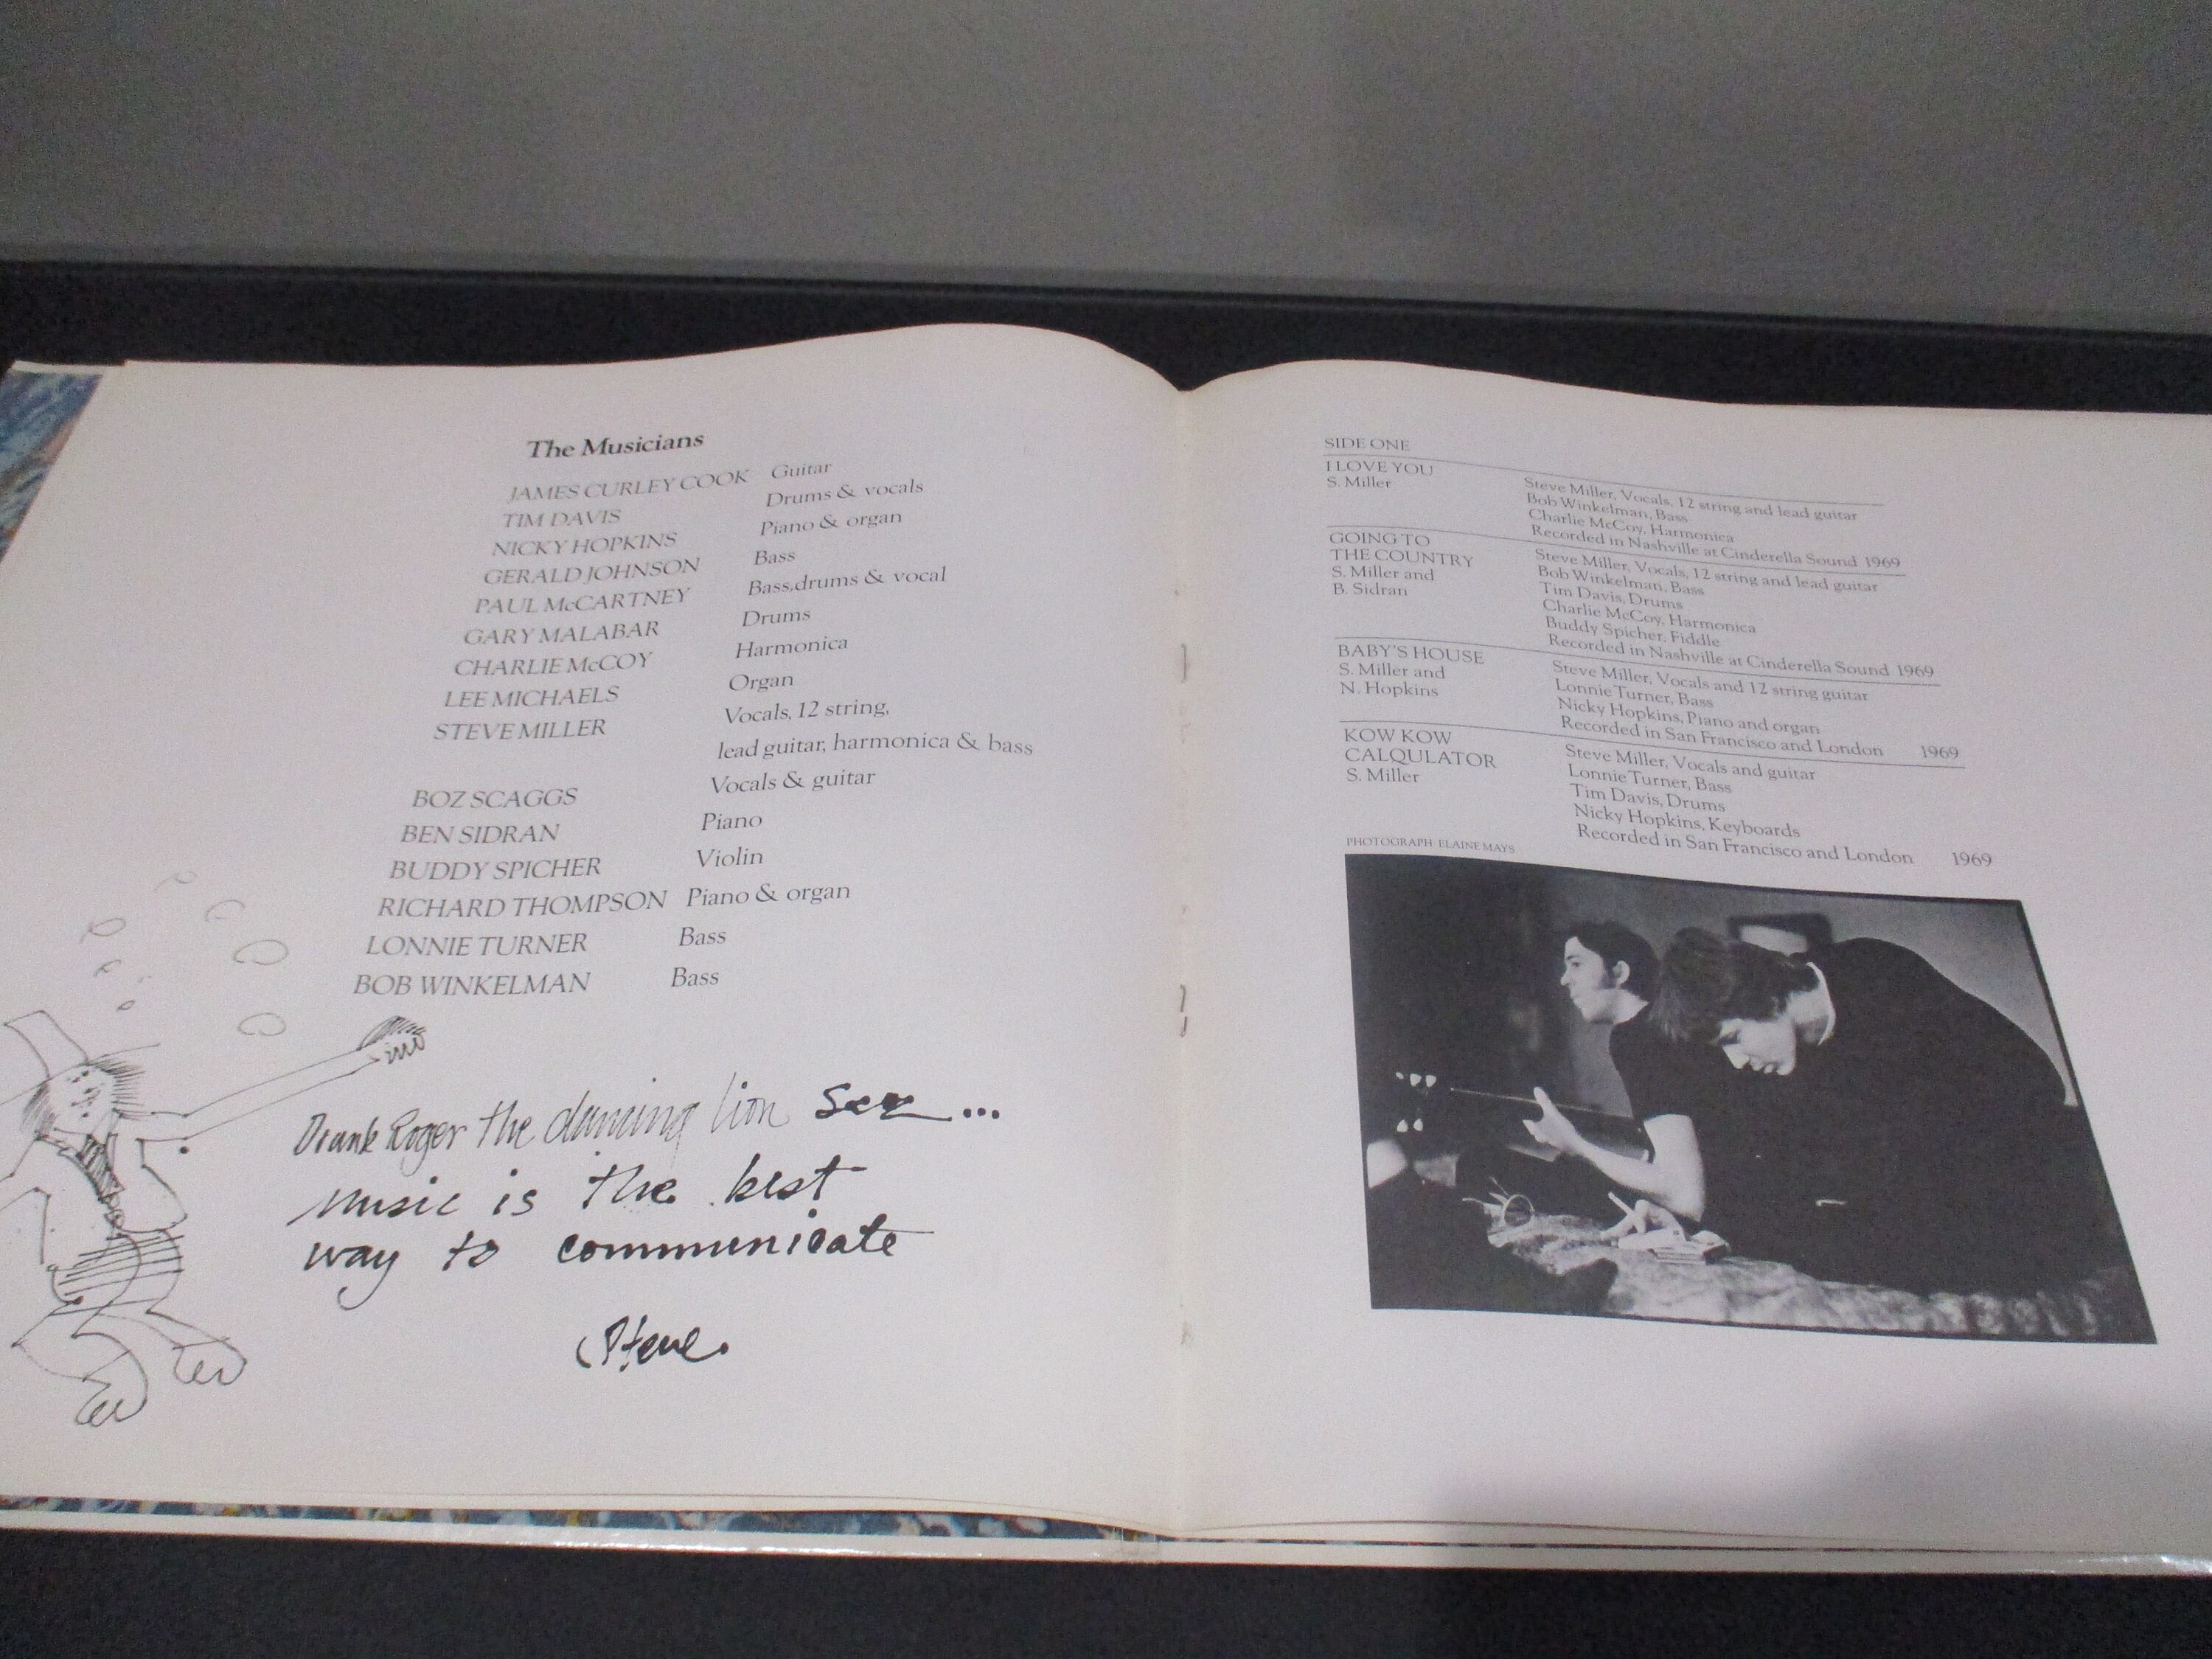 The Musicians
JAMES CURLEY COOK Guitar
TIM DAVIS Drums & vocals
NICKY HOPKINS Piano & organ
GERALD JOHNSON Bass
PAUL McCARTNEY Bass,drums & vocal
GARY MALABAR Drums
CHARLIE McCOY Harmonica
LEE MICHAELS Organ
STEVE MILLER Vocals, 12 string,
lead guitar, harmonica & bass
BOZ SCAGGS Vocals & guitar
BEN SIDRAN Piano
BUDDY SPICHER Violin
RICHARD THOMPSON Piano & organ
LONNIE TURNER Bass
BOB WINKELMAN Bass
Roger the dancing lion sez...
music is the best
way to communicate
Steve
SIDE ONE
I LOVE YOU
S. Miller
Steve Miller, Vocals, 12 string and lead guitar
Bob Winkelman, Bass
Charlie McCoy, Harmonica
Recorded in Nashville at Cinderella Sound 1969
GOING TO
THE COUNTRY
S. Miller and
B. Sidran
Steve Miller, Vocals, 12 string and lead guitar
Bob Winkelman, Bass
Tim Davis, Drums
Charlie McCoy, Harmonica
Buddy Spicher. Fiddle
Recorded in Nashville at Cinderella Sound 1969
BABY'S HOUSE
S. Miller and
N. Hopkins
Steve Miller, Vocals and 12 string guitar
Lonnie Turner, Bass
Nicky Hopkins, Piano and organ
Recorded in San Francisco and London 1969
KOW KOW
CALQULATOR
S. Miller
Steve Miller, Vocals and guitar
Lonnie Turner, Bass
Tim Davis, Drums
Nicky Hopkins, Keyboards
Recorded in San Francisco and London 1969
PHOTOGRAPH ELAINE MAYS